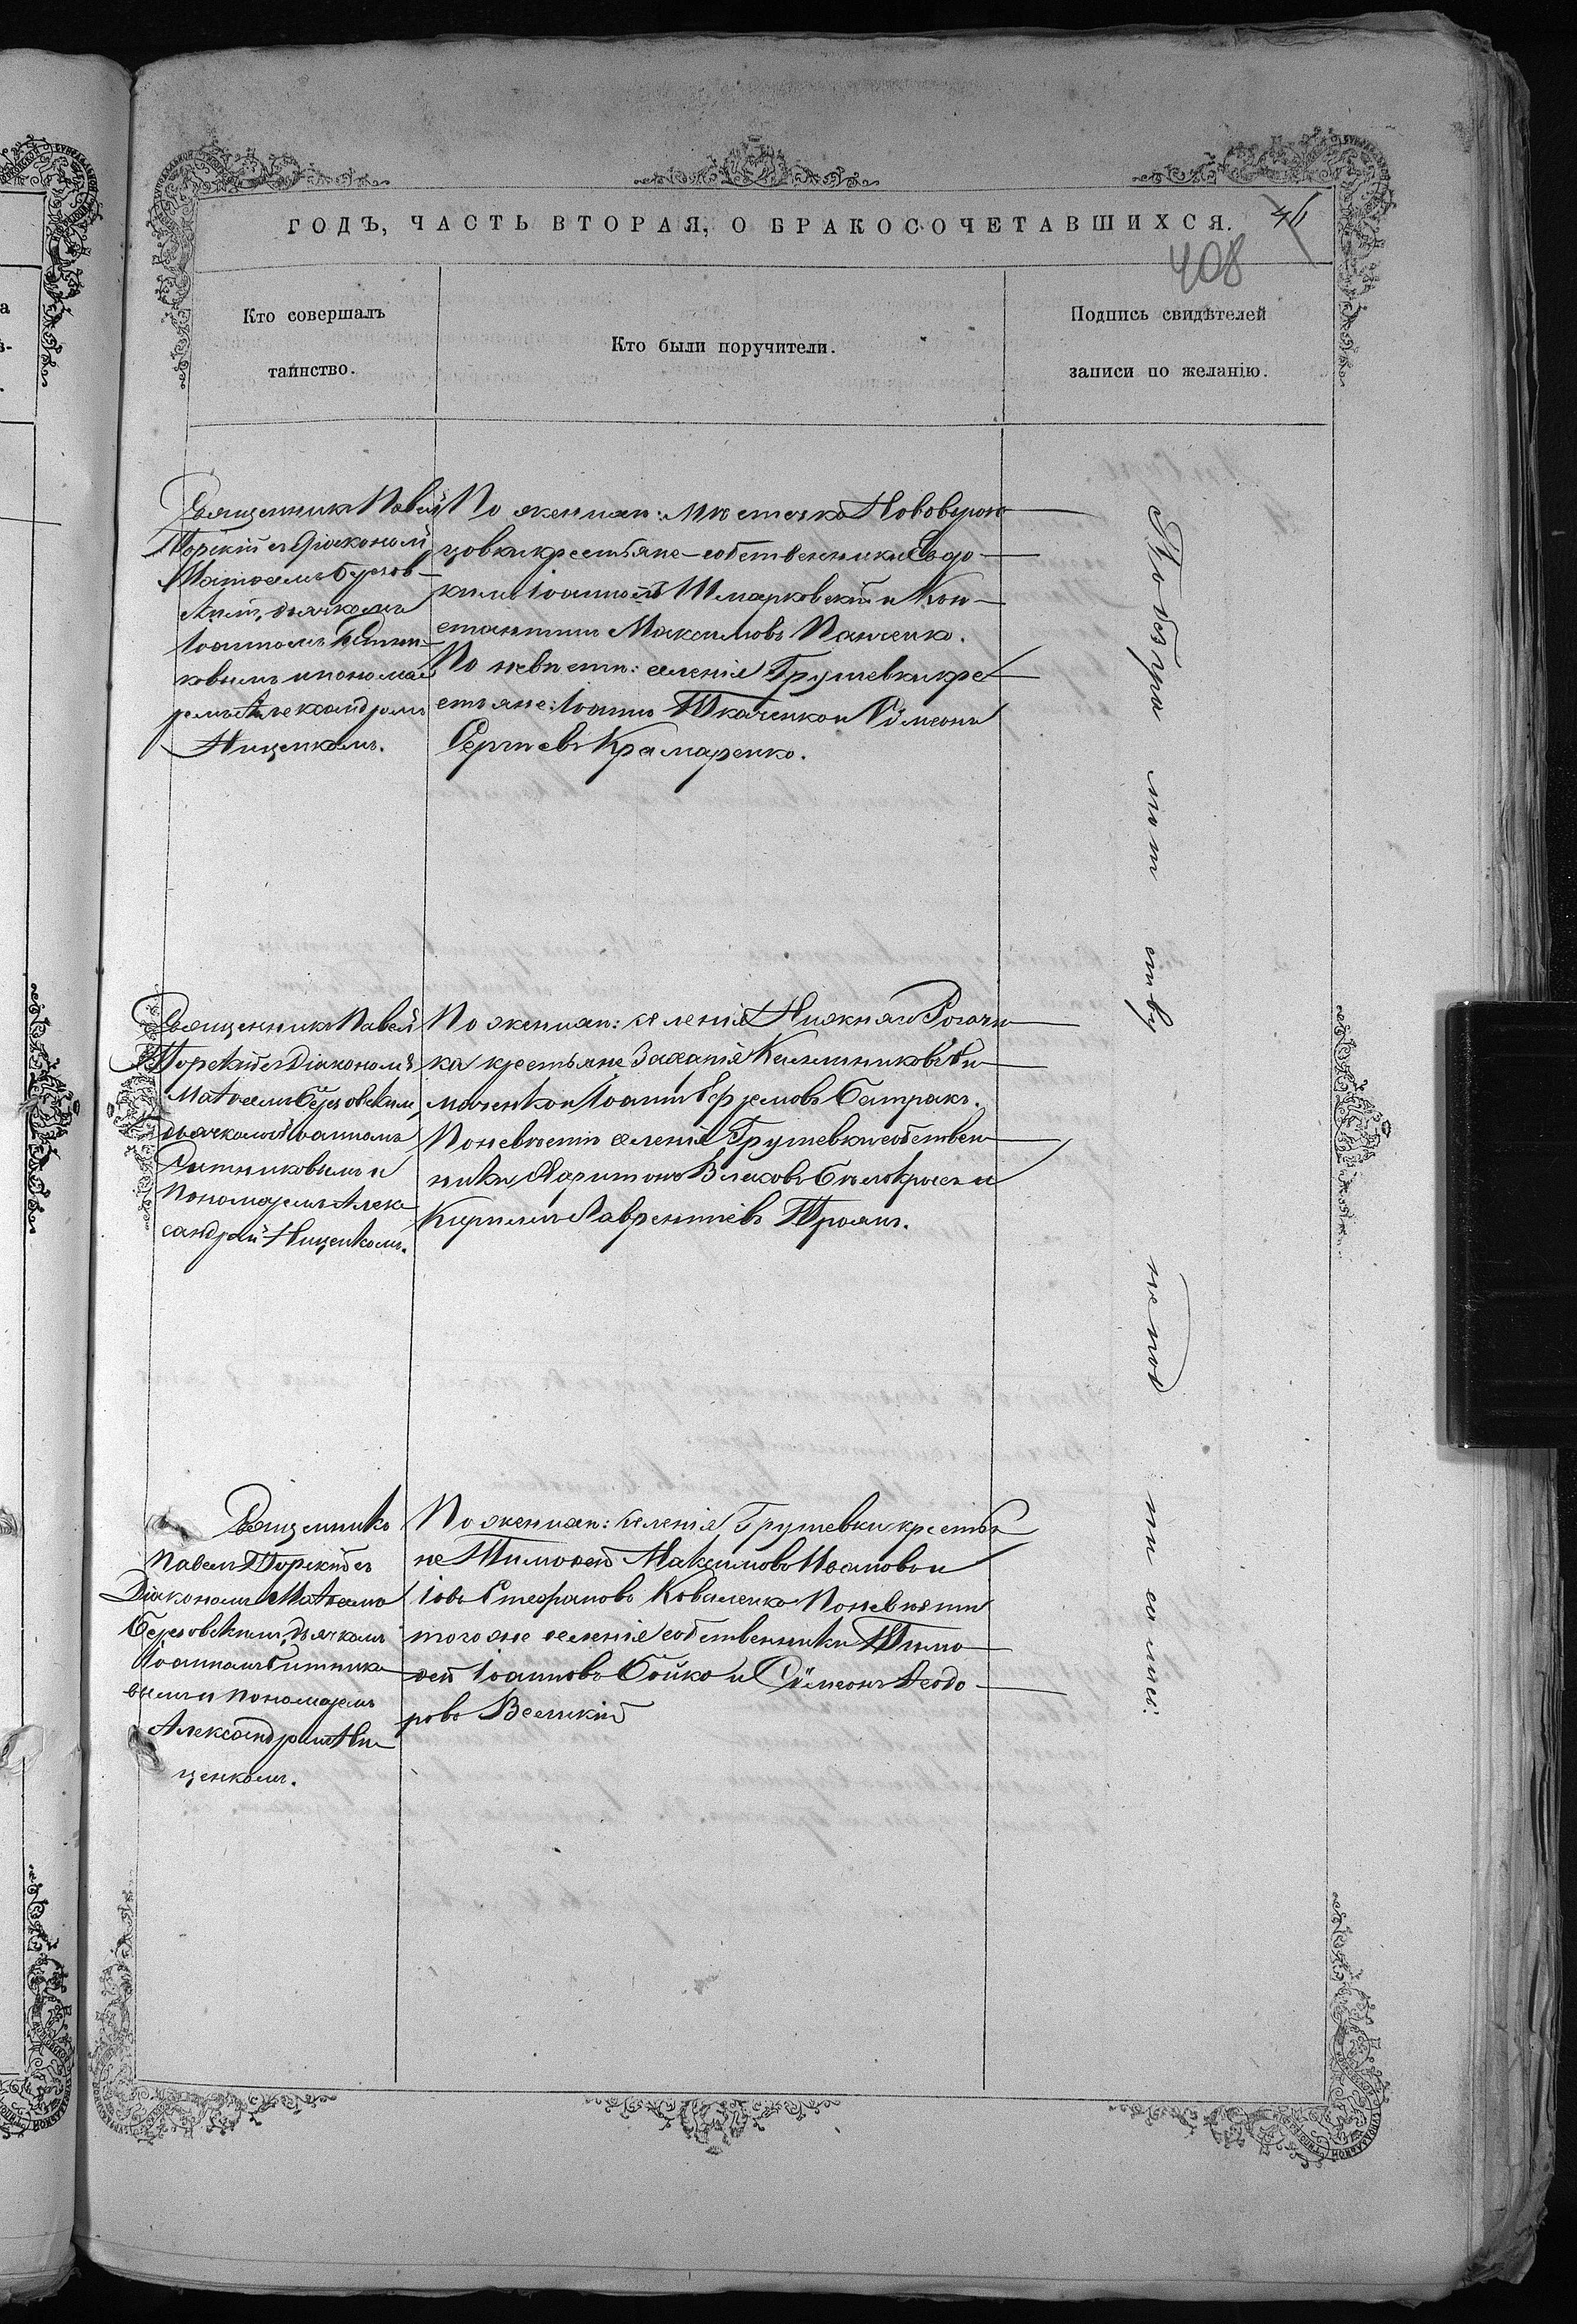 ГОДЪ, ЧАСТЬ ВТОРАЯ, О БРАКОСОЧЕТАВШИХСЯ.
408
Кто совершалъ
таинство.
Кто были поручители.
Подпись свидѣтелей
записи по желанію.
Священникъ Павелъ
Торскій съ Діакономъ
Матѳеемъ Березов-
скимъ, дьячкомъ
Іоанномъ
ковымъ и понома-
ремъ Александромъ
Нищенкомъ.
По женихѣ: мѣстечка Нововоронь
цовки крестьяне-собственники Евдо-
кимъ Іоанновъ Шмарковскій и Кон-
стантинъ Максимовъ Панченко.
По невѣстѣ: селенія Грушевки кре-
стьяне: Іоаннъ Ткаченко и Сѵмеонъ
Сергѣевъ Крамаренко.
Священникъ Павелъ
Торскій съ Діакономъ
Матѳеемъ Березовскимъ
дьячкомъ Іоанномъ
Ситниковымъ и
Пономаремъ Алек
сандромъ Нищенкомъ.
По женихѣ: селенія Нижняго Рогачи
ка крестьяне Захарія Ти
мошенко и Іоаннъ Ефремовъ Батракъ.
По невѣстѣ селенія Грушевки собствен
ники Харитонъ Власовъ и
Кириллъ Лаврентіевъ Троянъ.
Священникъ
Павелъ Торскій съ
Діакономъ Матѳеемъ
Березовскимъ, дьячкомъ
Іоанномъ Ситнико
вымъ и пономаремъ
Александромъ Ни
щенкомъ.
По женихѣ: селенія Грушевки крестья
не Тимоѳей Максимовъ Ивановъ и
Іовъ Стефановъ Коваленко По невѣстѣ
того же селенія собственники Тимо
ѳей Іоанновъ Бойко и Сѵмеонъ Ѳеодо
ровъ Великій
По безграмотству не подписались.